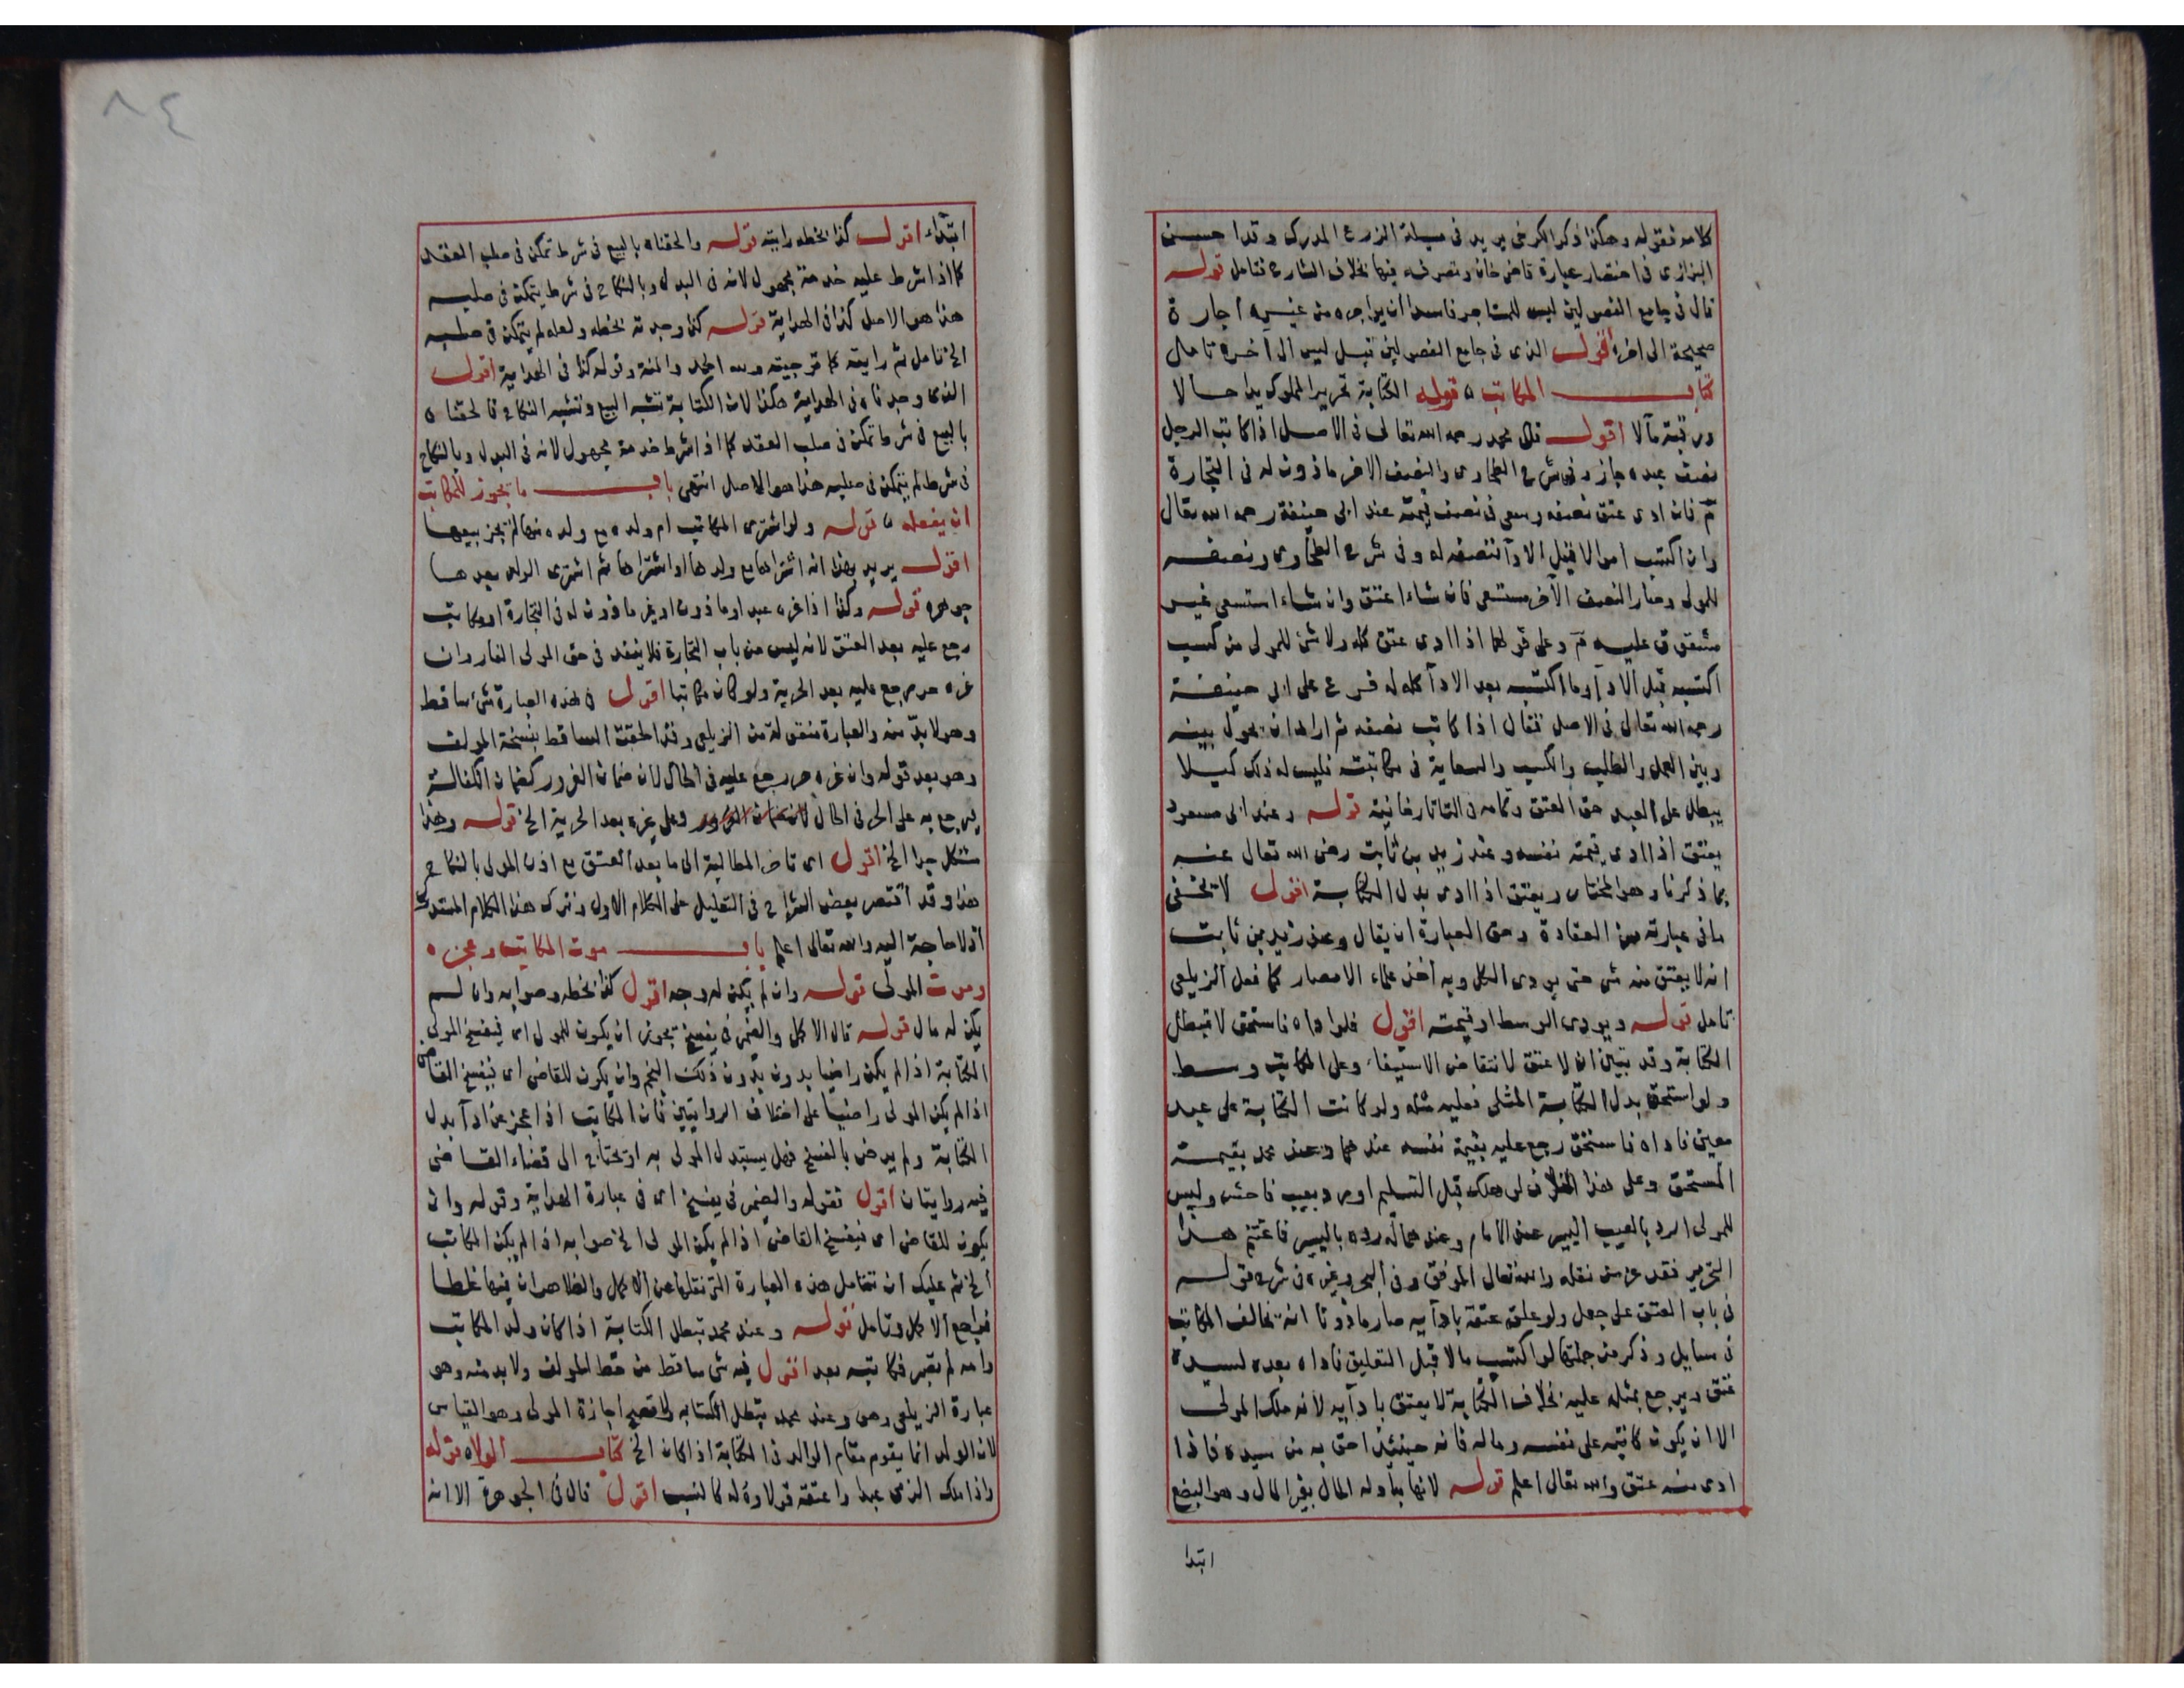 كلامه فقوله وهكذا ذكر الكرخي يريد في مسيلة الزرع المدرك وقد احسن
البزازي في اختصار عبارة قاضي خان وتصرفه فيها بخلاف الشارح فتامل قوله
قال في جامع الفصولين ليس للمستاجر فاسدا ان يواجره من غيره اجارة
صحيحة الى اخره اقول الذي في جامع الفصولين قيل ليس الى آخره تامل
كتاب المكاتب قوله الكتابة تحرير المملوك يدا حالا
ورقبة مآلا اقول قال محمد رحمه الله تعالى في الاصل اذا كاتب الرجل
نصف عبده جاز وفي شرح الطحاوي والنصف الاخر ماذون له في التجارة
م فان ادى عتق نصفه وسعى في نصف قيمته عند ابي حنيفة رحمه الله تعال
وان اكتسب اموالا قبل الاداء فنصفه له وفي شرح الطحاوي ونصفه
للمولى وصار النصف الآخر مستسعى فان شاء اعتق وان شاء استسعى غير
مشقوق عليه م وعلى قولهما اذا ادى عتق كله ولا شئ للمولى من كسب
اكتسبه قبل الادآ وما اكتسبه بعد الادآ كله له فرع على ابي حنيفة
رحمه الله تعالى في الاصل فقال اذا كاتب نصفه ثم اراد ان يحول بينه
وبين العمل والطلب والكسب والسعاية في مكاتبته فليس له ذلك كيلا
يبطل على العبد حق العتق وتمامه في التاتارخانية قوله وعند ابي مسعود
يعتق اذا ادى قيمة نفسه وعند زيد بن ثابت رضي الله تعالى عنه
بما ذكرنا وهو المختار ويعتق اذا ادى بدل الكتابة اقول لا يخفى
ما في عبارته من العقادة وحق العبارة ان يقال وعن زيد بن ثابت
انه لا يعتق منه شي حتى يودى الكل وبه اخذ علماء الامصار كما فعل الزيلعي
تامل قوله ويودى الوسط او قيمته اقول فلو اداه فاستحق لا تبطل
الكتابة وقد تبين ان لا عتق لانتقاض الاستيفاء وعلى المكاتب وسط
ولو استحق بدل الكتابة المثلى فعليه مثله ولو كانت الكتابة على عبد
معين فاداه فاستحق رجع عليه بقيمة نفسه عندهما وعند محمد بقيمة
المستحق وعلى هذا الخلاف لو هلك قبل التسليم او رد بعيب فاحش وليس
للمولى الرد بالعيب اليسير عند الامام وعندهما له رده باليسير فاغتنم هذا
التحرير فقد عز من نقله والله تعال الموفق وفي البحر وغيره في شرح قوله
في باب العتق على جعل ولو علق عتقه بادآيه صار ماذونا انه يخالف المكاتب
في مسايل وذكر من جملتها لو اكتسب مالا قبل التعليق فاداه بعده لسيده
عتق ويرجع بمثله عليه بخلاف الكتابة لا يعتق بادآيه لانه ملك المولى
الا ان يكون كاتبه على نفسه وماله فانه حينئذ احق به من سيده فاذا
ادى منه عتق والله تعالى اعلم قوله لانها مبادلة المال بغير المال وهو البضع
ابتدا
٨٤
ابتداء اقول كذا بخطه رايته قوله والحقناه بالبيع في شرط تمكن في صلب العقد
كما اذا شرط عليه خدمة مجهول لانه في البدل وبالنكاح في شرط يتمكن في صلبه
هذا هو الاصل كذا في الهداية قوله كذا وجدته بخطه ولعله لم يتمكن في صلبه
الخ تامل ثم رايته كما ترجيته ولله الحمد والمنة وقوله كذا في الهداية اقول
الذي وجدناه في الهداية هكذا لان الكتابة تشبه البيع وتشبه النكاح فالحقناه
بالبيع في شرط تمكن في صلب العقد كما اذا شرط خدمة مجهول لانه في البدل وبالنكاح
في شرط لم يتمكن في صلبه هذا هو الاصل انتهى باب ما يجوز للمكاتب
ان يفعله قوله ولو اشترى المكاتب ام ولده مع ولده منها لم يجز بيعها
اقول يريد بهذا انه اشتراها مع ولدها او اشتراها ثم اشترى الولد بعدها
جوهره قوله وكذا اذا غره عبد او ماذون او غير ماذون له في التجارة او مكاتب
رجع عليه بعد العتق لانه ليس من باب التجارة فلا ينفذ في حق المولى الغار وان
غره حر يرجع عليه بعد الحرية ولو كان مكاتبا اقول في هذه العبارة شئ ساقط
وهو لا بد منه والعبارة منقولة من الزيلعي وقد الحقت الساقط بنسخة المولف
وهو بعد قوله وان غره حر رجع عليه في الحال لان ضمان الغرور كضمان الكفالة
يرجع به على الحر في الحال لان ضمان الغرور وعلى غيره بعد الحرية الخ قوله وهذا
مشكل جدا الخ اقول اي تاخر المطالبة الى ما بعد العتق مع اذن المولى بالنكاح
هذا وقد اقتصر بعض الشراح في التعليل على الكلام الاول وترك هذا الكلام المستدرك
اذ لا حاجة اليه والله تعالى اعلم باب موت المكاتب وعجزه
وموت المولى قوله وان لم يكن له وجه اقول كذا بخطه وصوابه وان لم
يكن له مال قوله قال الاكمل والضمير في يفسخ يجوز ان يكون للمولى اي فيفسخ المولى
الكتابة اذا لم يكن راضيا بدون بدون ذلك النجم وان يكون للقاضى اي فيفسخ القاضي
اذا لم يكن المولى راضيا على اختلاف الروايتين فان المكاتب اذا عجز عن ادآ بدل
الكتابة ولم يرض بالفسخ فهل يستبد المولى به او يحتاج الى قضاء القاضى
فيه روايتان اقول فقوله والضمير في يفسخ اي في عبارة الهداية وقوله وان
يكون للقاضى اي فيفسخ القاضى اذا لم يكن المولى الخ صوابه اذا لم يكن المكاتب
الخ ثم عليك ان تتامل هذه العبارة التي نقلها عن الاكمل والظاهر ان فيها غلطا
فيراجع الاكمل وتامل قوله وعند محمد تبطل الكتابة اذا كان ولد المكاتب
وامه لم تصر مكاتبه بعد اقول فيه شى ساقط من خط المولف ولا بد منه وهو
عبارة الزيلعي وهي وعند محمد تبطل الكتابه ولا تصح اجازة المولى وهو القياس
لان الولد انما يقوم مقام الوالد في الكتابة اذا كان الخ كتاب الولاء قوله
واذا ملك الذمي عبدا واعتقه فولاؤه له كالنسب اقول قال في الجوهرة الا انه